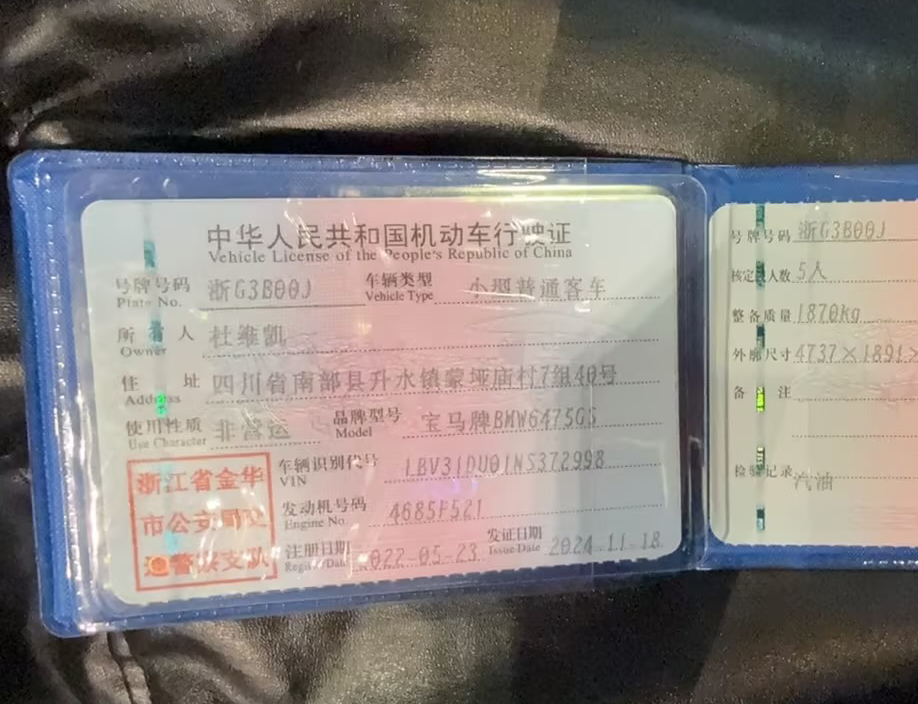 中华人民共和国机动车行驶证
Vehicle License of the People's Republic of China
号牌号码 浙G3B00J 车辆类型 小型普通客车
Plate No. Vehicle Type
所有人 杜维凯
Owner
住址 四川省南部县升水镇蒙垭庙村7组40号
Address
使用性质 非营运 品牌型号 宝马牌BMW6475GS
Use Character Model
浙江省金华
市公安局交
通警察支队
车辆识别代号 LBV31DU01NS372998
VIN
发动机号码 4685F521
Engine No.
注册日期 2022-05-23 发证日期 2024-11-18
Register Date Issue Date
号牌号码 浙G3B00J
核定载人数 5人
整备质量 1870kg
外廓尺寸 4737×1891×
备注
检验记录
汽油